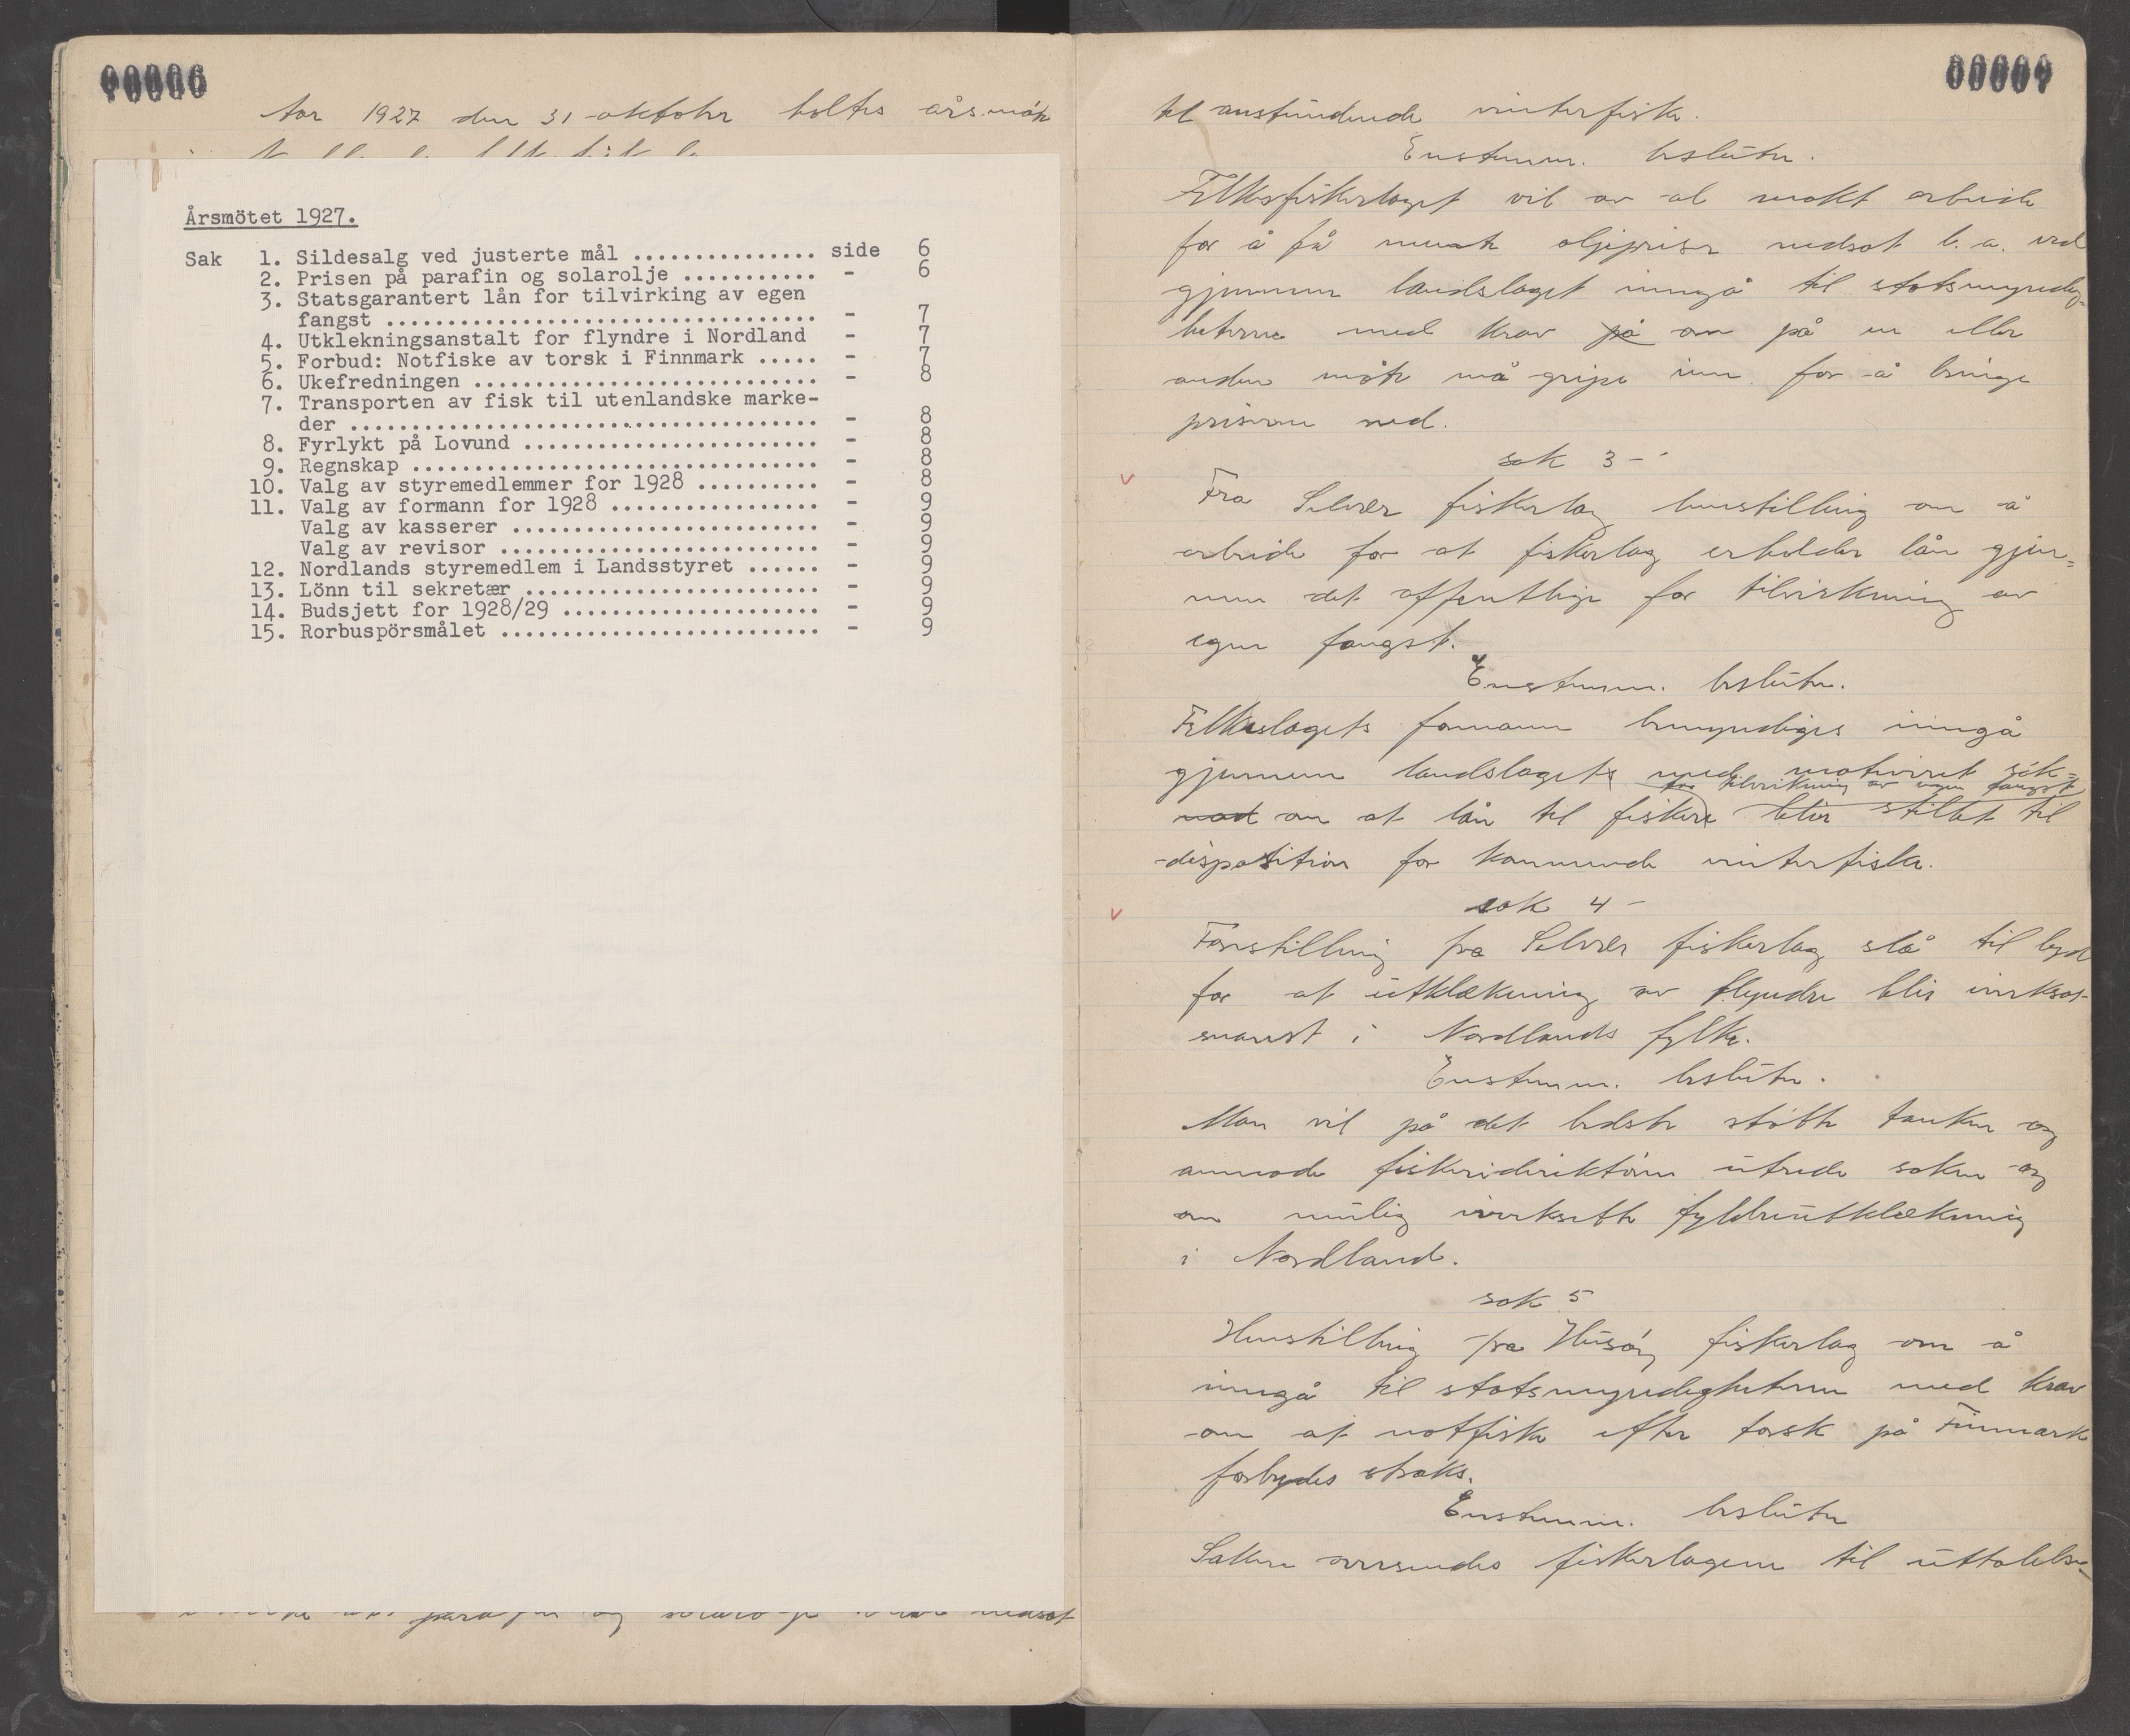 00006
Aar 1927 den 31 oktober holtes årsmøte
Årsmötet 1927.
Sak 1. Sildesalg ved justerte mål ................ side 6
2. Prisen på parafin og solarolje ............ - 6
3. Statsgarantert lån for tilvirking av egen
fangst ................................... - 7
4. Utklekningsanstalt for flyndre i Nordland - 7
5. Forbud: Notfiske av torsk i Finnmark ..... - 7
6. Ukefredningen ............................ - 8
7. Transporten av fisk til utenlandske marke-
der ...................................... - 8
8. Fyrlykt på Lovund ........................ - 8
9. Regnskap ................................. - 8
10. Valg av styremedlemmer for 1928 .......... - 8
11. Valg av formann for 1928 ................. - 9
Valg av kasserer ......................... - 9
Valg av revisor .......................... - 9
12. Nordlands styremedlem i Landsstyret ...... - 9
13. Lönn til sekretær ........................ - 9
14. Budsjett for 1928/29 ..................... - 9
15. Rorbuspörsmålet .......................... - 9
parafin og solarolje nedsat
00007
til anstundende vinterfiske.
Enstemm. besluten.
Fylkesfiskerlaget vil av al makt arbeide
for å få oljepriser nedsat b.a. ved
gjennem landslaget inngå til statsmyndig=
heterne med krav på om på en eller
anden måte må gripe inn for å bringe
prisene ned.
sak 3-
Fra Selvær fiskerlag henstilling om å
arbeide for at fiskerlag erholder lån gjen=
nem det offentlige for tilvirkning av
egen fangst.
Enstemm. besluten.
Fylkeslagets formann bemyndiges inngå
gjennem landslagets med motivert søk=
for tilvirkning av egen fangst
nad om at lån til fiskere blir stillet til
disposition for kommende vinterfiske.
sak 4-
Forestilling fra Selvær fiskerlag slå til lyd
for at utklækning av flyndre blir iverksat
snarest i Nordlands fylke.
Enstemm. besluten.
Man vil på det bedste støtte tanken og
anmode fiskeridirektøren utrede saken og
om mulig iverksette fyldreutklækning
i Nordland.
sak 5
Henstilling fra Husøy fiskerlag om å
inngå til statsmyndigheterne med krav
om at notfiske efter torsk på Finmark
forbydes straks.
Enstemm. besluten
Saken oversendes fiskerlagene til uttalelse